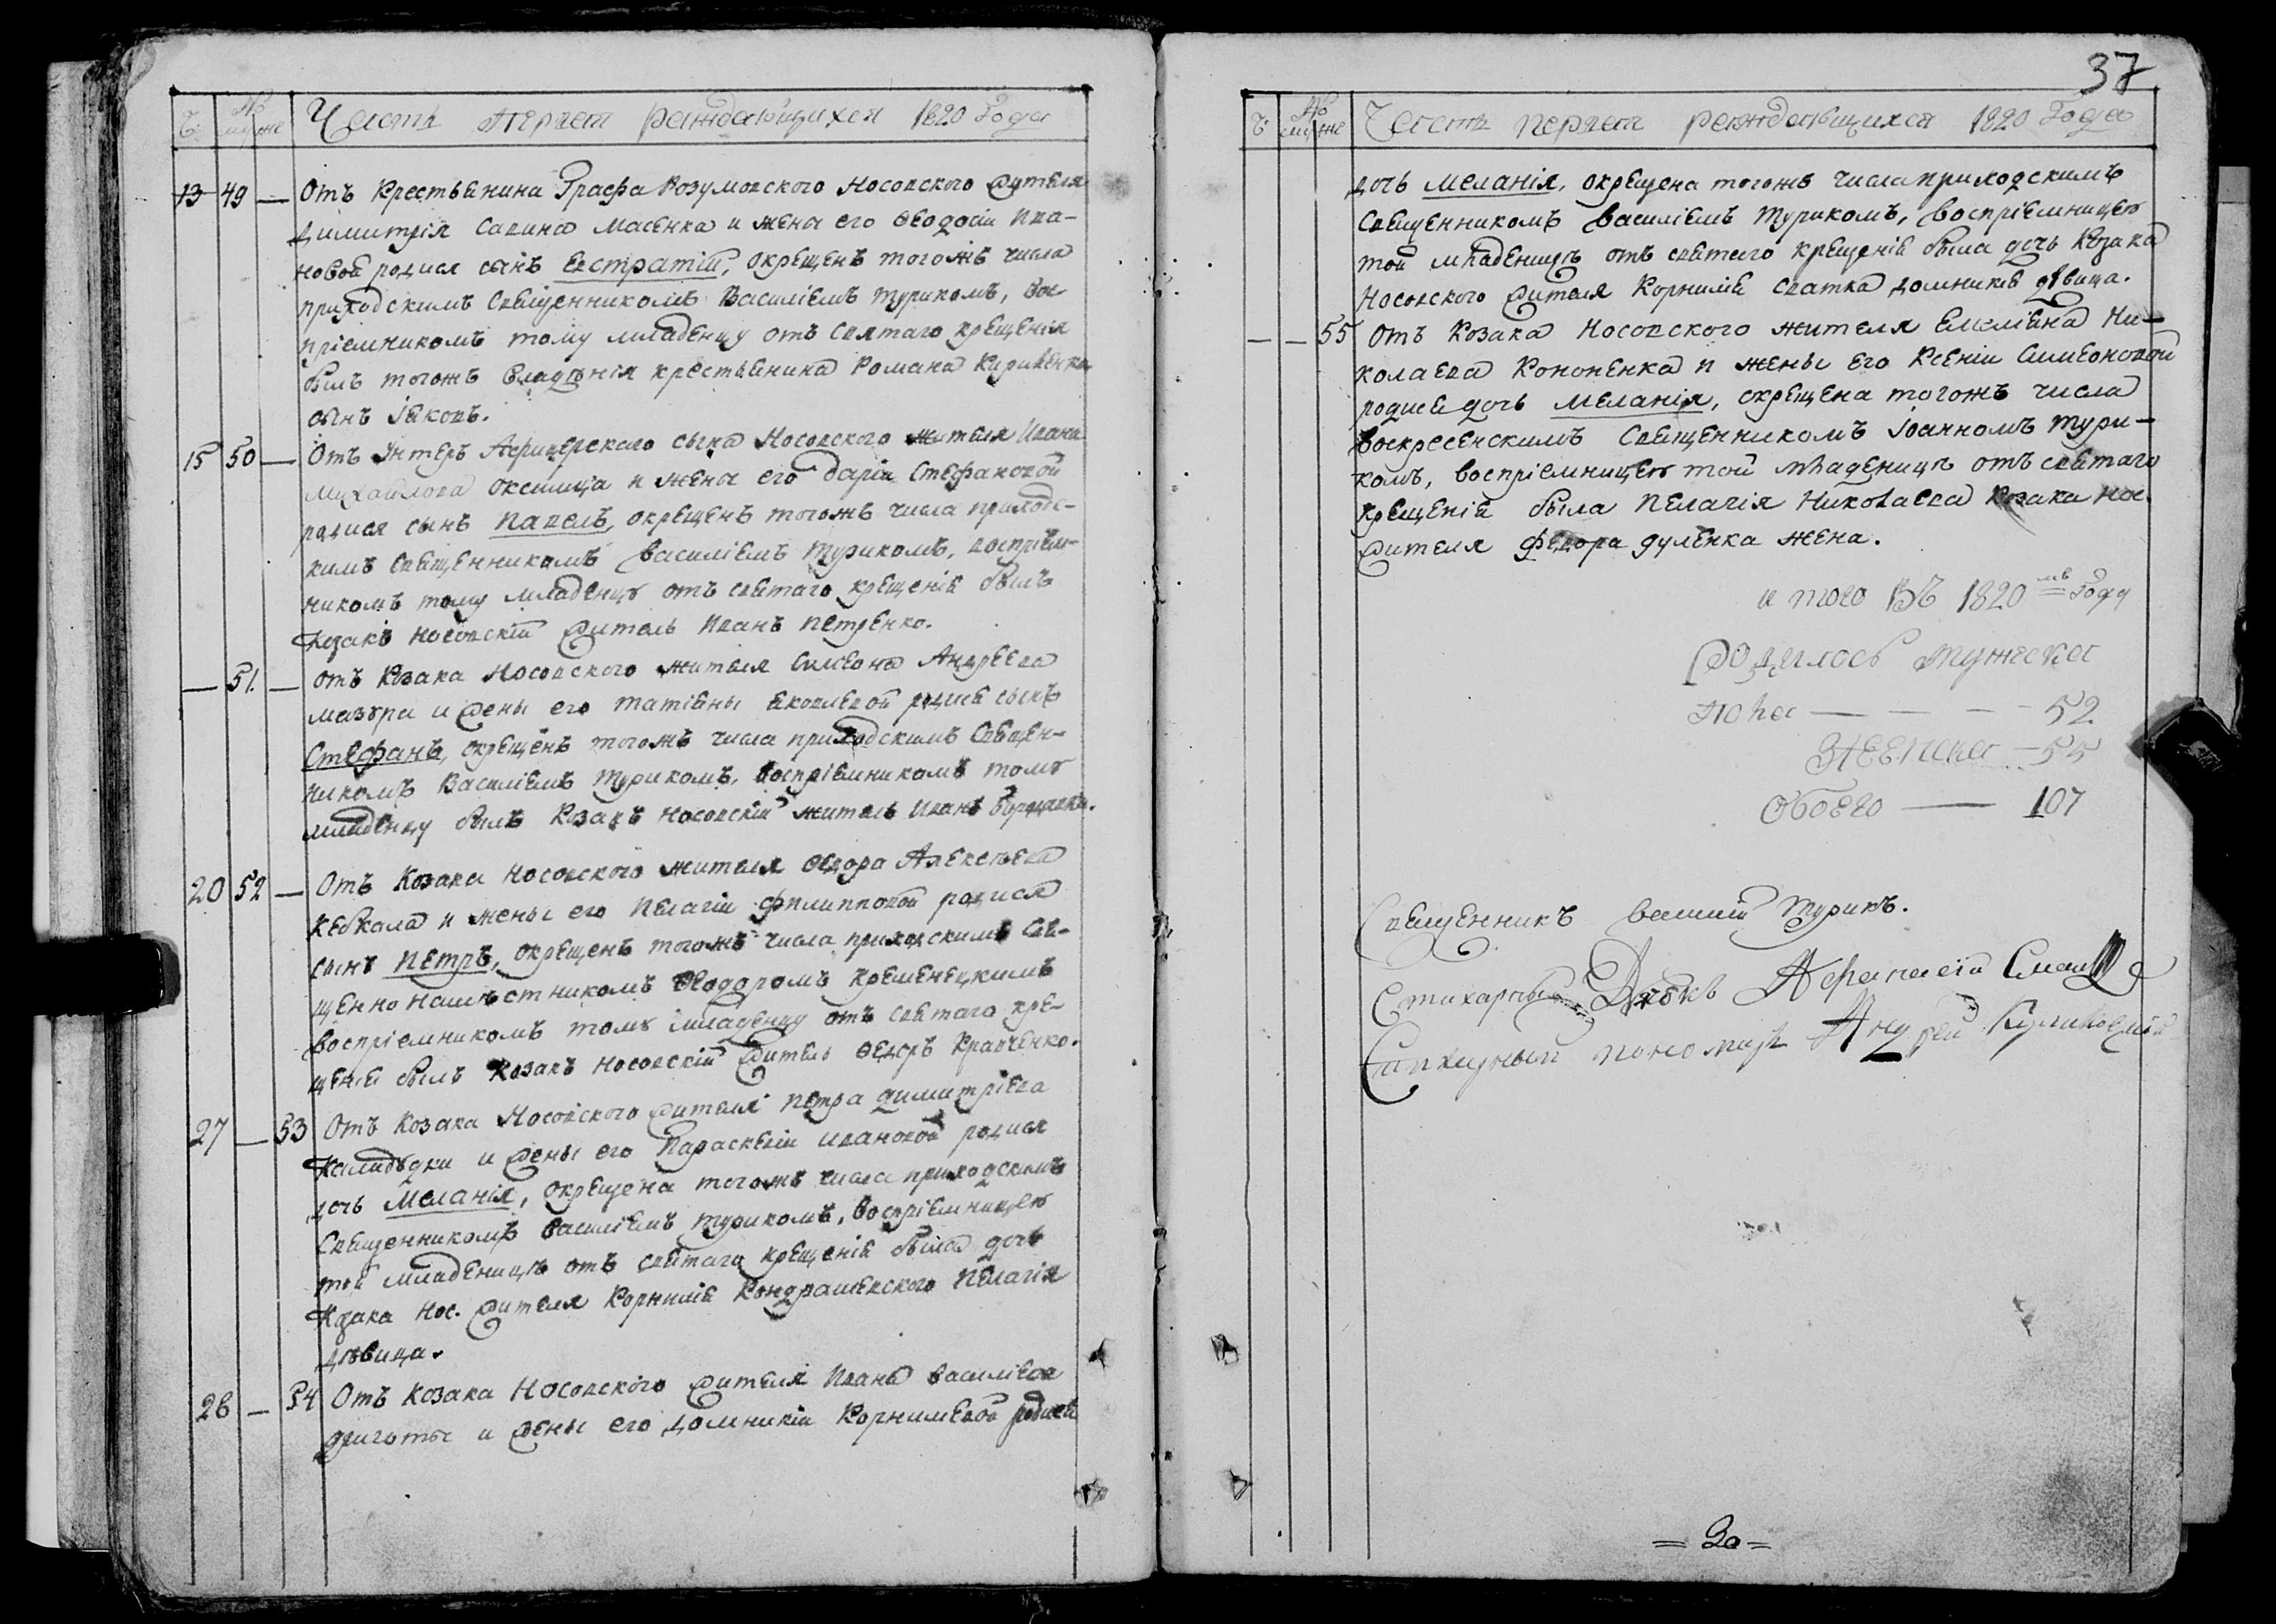 Часть первая раждающихся 1820 года
Ч. №
муж же
13 49 — Отъ Крестьянина Графа Розумовского Носовского жителя
Димитрія Савина Масенка и жены его Феодосіи Ива-
новой родися сынъ Евстратій, окрещенъ тогожъ числа
приходскимъ Священникомъ Василіемъ Турикомъ, вос-
пріемникомъ тому младенцу отъ Святаго крещенія
былъ тогожъ владѣнія крестьянина Романа
сынъ Іаковъ.
15 50 — Отъ Унтеръ Афицерского сына Носовского жителя Ивана
Михайлова и жены его Даріи Стефановой
родися сынъ Павелъ, окрещенъ тогожъ числа приходс-
кимъ Священникомъ Василіемъ Турикомъ, воспріем-
никомъ тому младенцу отъ святаго крещенія былъ
Козакъ Носовскій житель Иванъ Петренко.
— 51. — Отъ Козака Носовского жителя Симеона Андреева
мазура и жены его Татіяны Яковлевой родися сынъ
Стефанъ, окрещенъ тогожъ числа приходскимъ Священ-
никомъ Василіемъ Турикомъ, воспріемникомъ тому
младенцу былъ Козакъ Носовскій житель Иванъ
20 52 — Отъ Козака Носовского жителя Ѳедора Алексѣева
Кебкала и жены его Пелагіи Филипповой родися
сынъ Петръ, окрещенъ тогожъ числа приходскимъ Свя-
щенно намѣстникомъ Ѳеодоромъ Кременецкимъ
воспріемникомъ тому младенцу отъ святаго кре-
щенія былъ Козакъ Носовскій житель Ѳедоръ Кравченко.
27 — 53 Отъ Козака Носовского жителя Петра Димитріева
и жены его Параскевіи Ивановой родися
дочь Меланія, окрещена тогожъ числа приходскимъ
Священникомъ Василіемъ Турикомъ, воспріемницею
той младеницѣ отъ святаго крещенія была дочь
Козака Нос. жителя Корнилія Кондрашевского Пелагія
дѣвица.
28 — 54 Отъ Козака Носовского жителя Ивана Василіева
и жены его Домникіи Корниліевой родися
37
Ч. №
муж же
Часть первая раждающихся 1820 года
дочь Меланія, окрещена тогожъ числа приходскимъ
Священникомъ Василіемъ Турикомъ, воспріемницею
той младеницѣ отъ святаго крещенія была дочь Козака
Носовского жителя Корнилія Сватка Домникія дѣвица.
— — 55 Отъ Козака Носовского жителя Емеліяна Ни-
колаева Кононенка и жены его Ксеніи Симеоновой
родися дочь Меланія, окрещена тогожъ числа
Воскресенскимъ Священникомъ Іоанномъ Тури-
комъ, воспріемницею той младеницѣ отъ святаго
крещенія была Пелагія Николаева Козака Нос.
жителя Федора Дуленка жена.
и того Въ 1820мъ году
родилось мужеска
пола — — — 52
Женска — 55
Обоего — 107
Священникъ Василій Турикъ.
Стихарный Дьякъ Афанасій
Стихарный пономарь Андрей Куликовскій